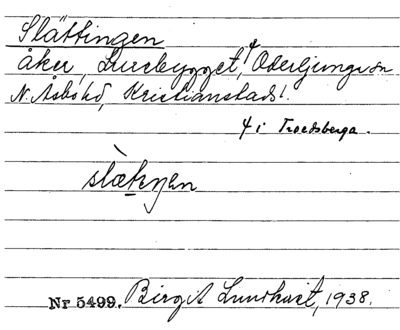 Slättingen
åker, Lurebygget,⁴ Oderljunga sn
N. Åsbo hd, Kristianstads l.
4 i Troedsberga.
slæteŋen
Nr 5499. Birgit Lundkvist, 1938.